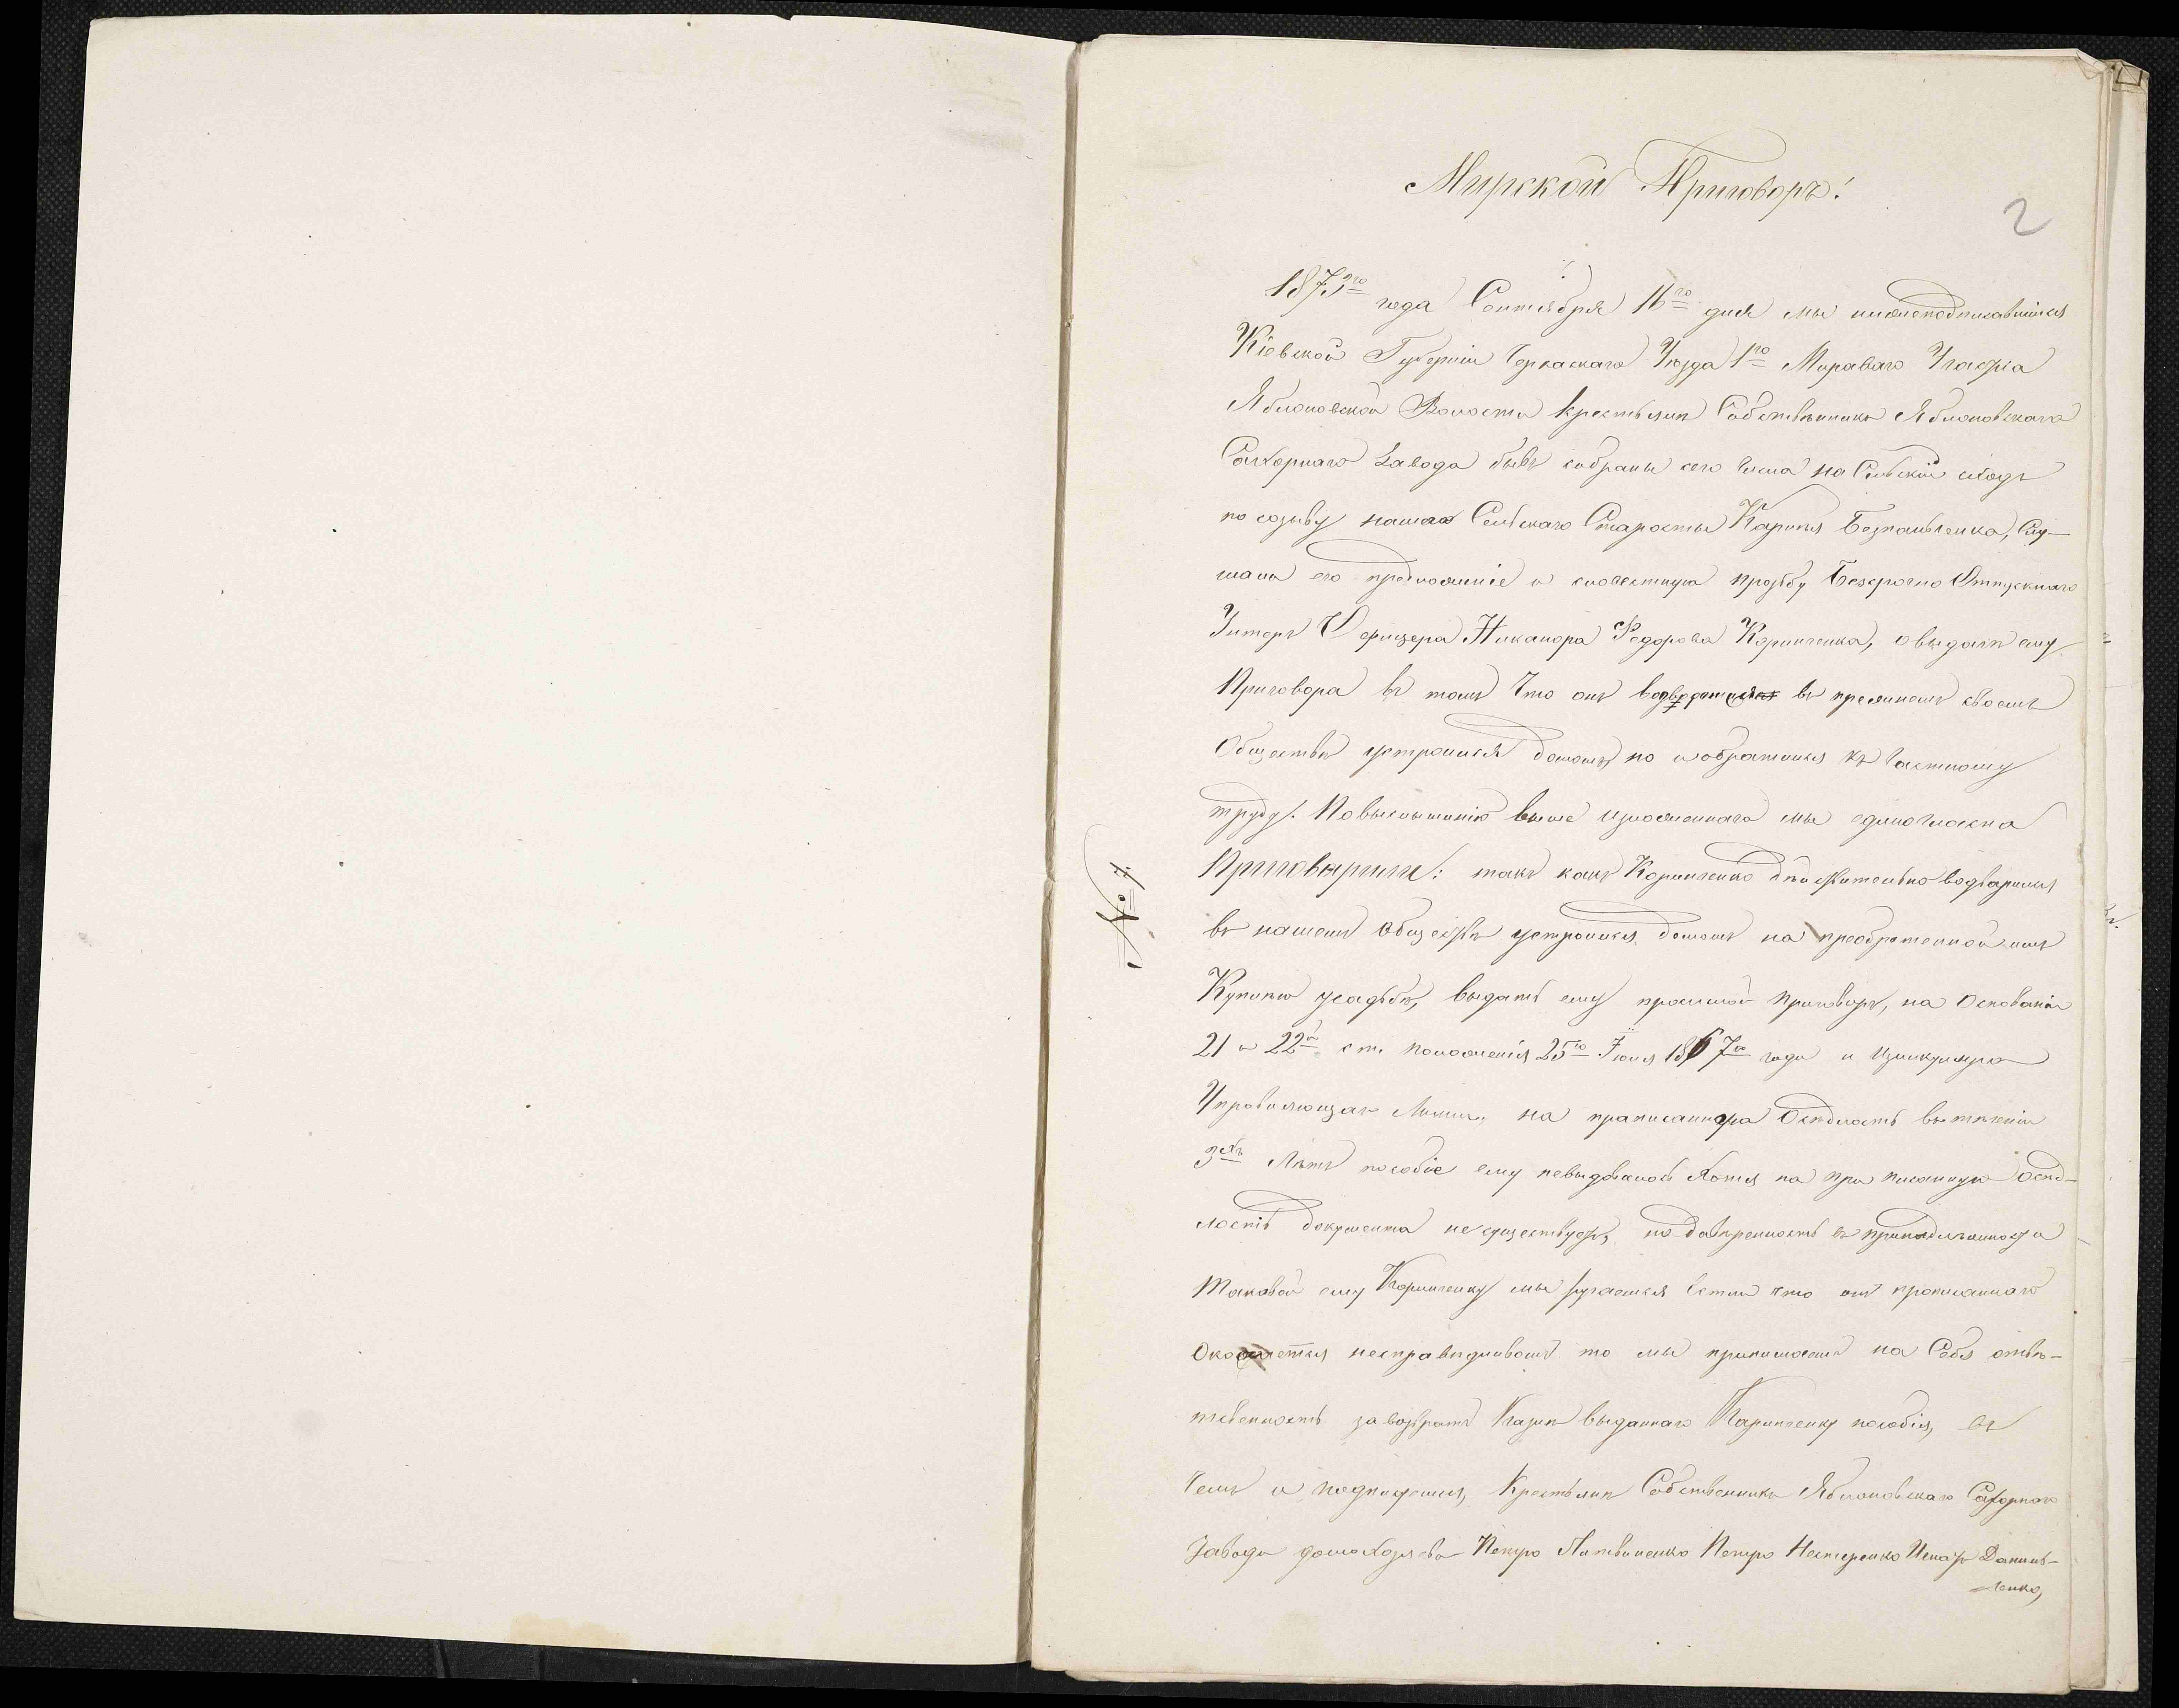 Мирской Приговоръ!
2
1873го года Сентября 16го дня мы нижеподписавшіеся
Кіевской Губерніи Черкаскаго Уѣзда 1го Мироваго Участка
Яблоновской Волости крестьяне Собствѣнники Яблоновскаго
Сахорнаго Завода бывъ собраны сего числа на Сельскій сходъ
по созыву нашего Сельскаго Старосты Карпа Безпальченка, Слу-
шали его предложеніе и словестную прозьбу Безсрочно Отпускнаго
Унтеръ Офицера Никанора Федорова Коринченка, о выдачи ему
Приговора въ томъ что онъ въ прежнемъ своемъ
Обществѣ устроился домомъ но и обратился къ частному
труду. По выслушанію выше изложеннаго мы единогласно
Приговарили: такъ какъ Коринченко дѣйствительно водварился
въ нашемъ Обществѣ устроился домомъ на преобретенной имъ
№ 7.
Куплею усадьбѣ, выдать ему просимой приговоръ, на Основаніи
21 и 22й ст. положенія 25го Іюня 1867го года и
на Осѣдлость въ теченіи
3хъ Лѣтъ пособіе ему невыдовалось Хотя на при писанную Осѣд-
лость документа не существуетъ, но
таковой ему Коринченку мы ручаемся Если что отъ прописаннаго
Окажется несправедливымъ то мы принимаемъ на Себя отвѣ-
тственность за возвратъ Казнѣ выданнаго Каринченку пособія, въ
Чемъ и подпишемся, Крестьяне Собственники Яблоновскаго Сахорнаго
Завода домохозяева Петро Литвиненко Петро Нестеренко Игнатъ Даниль-
ченко,